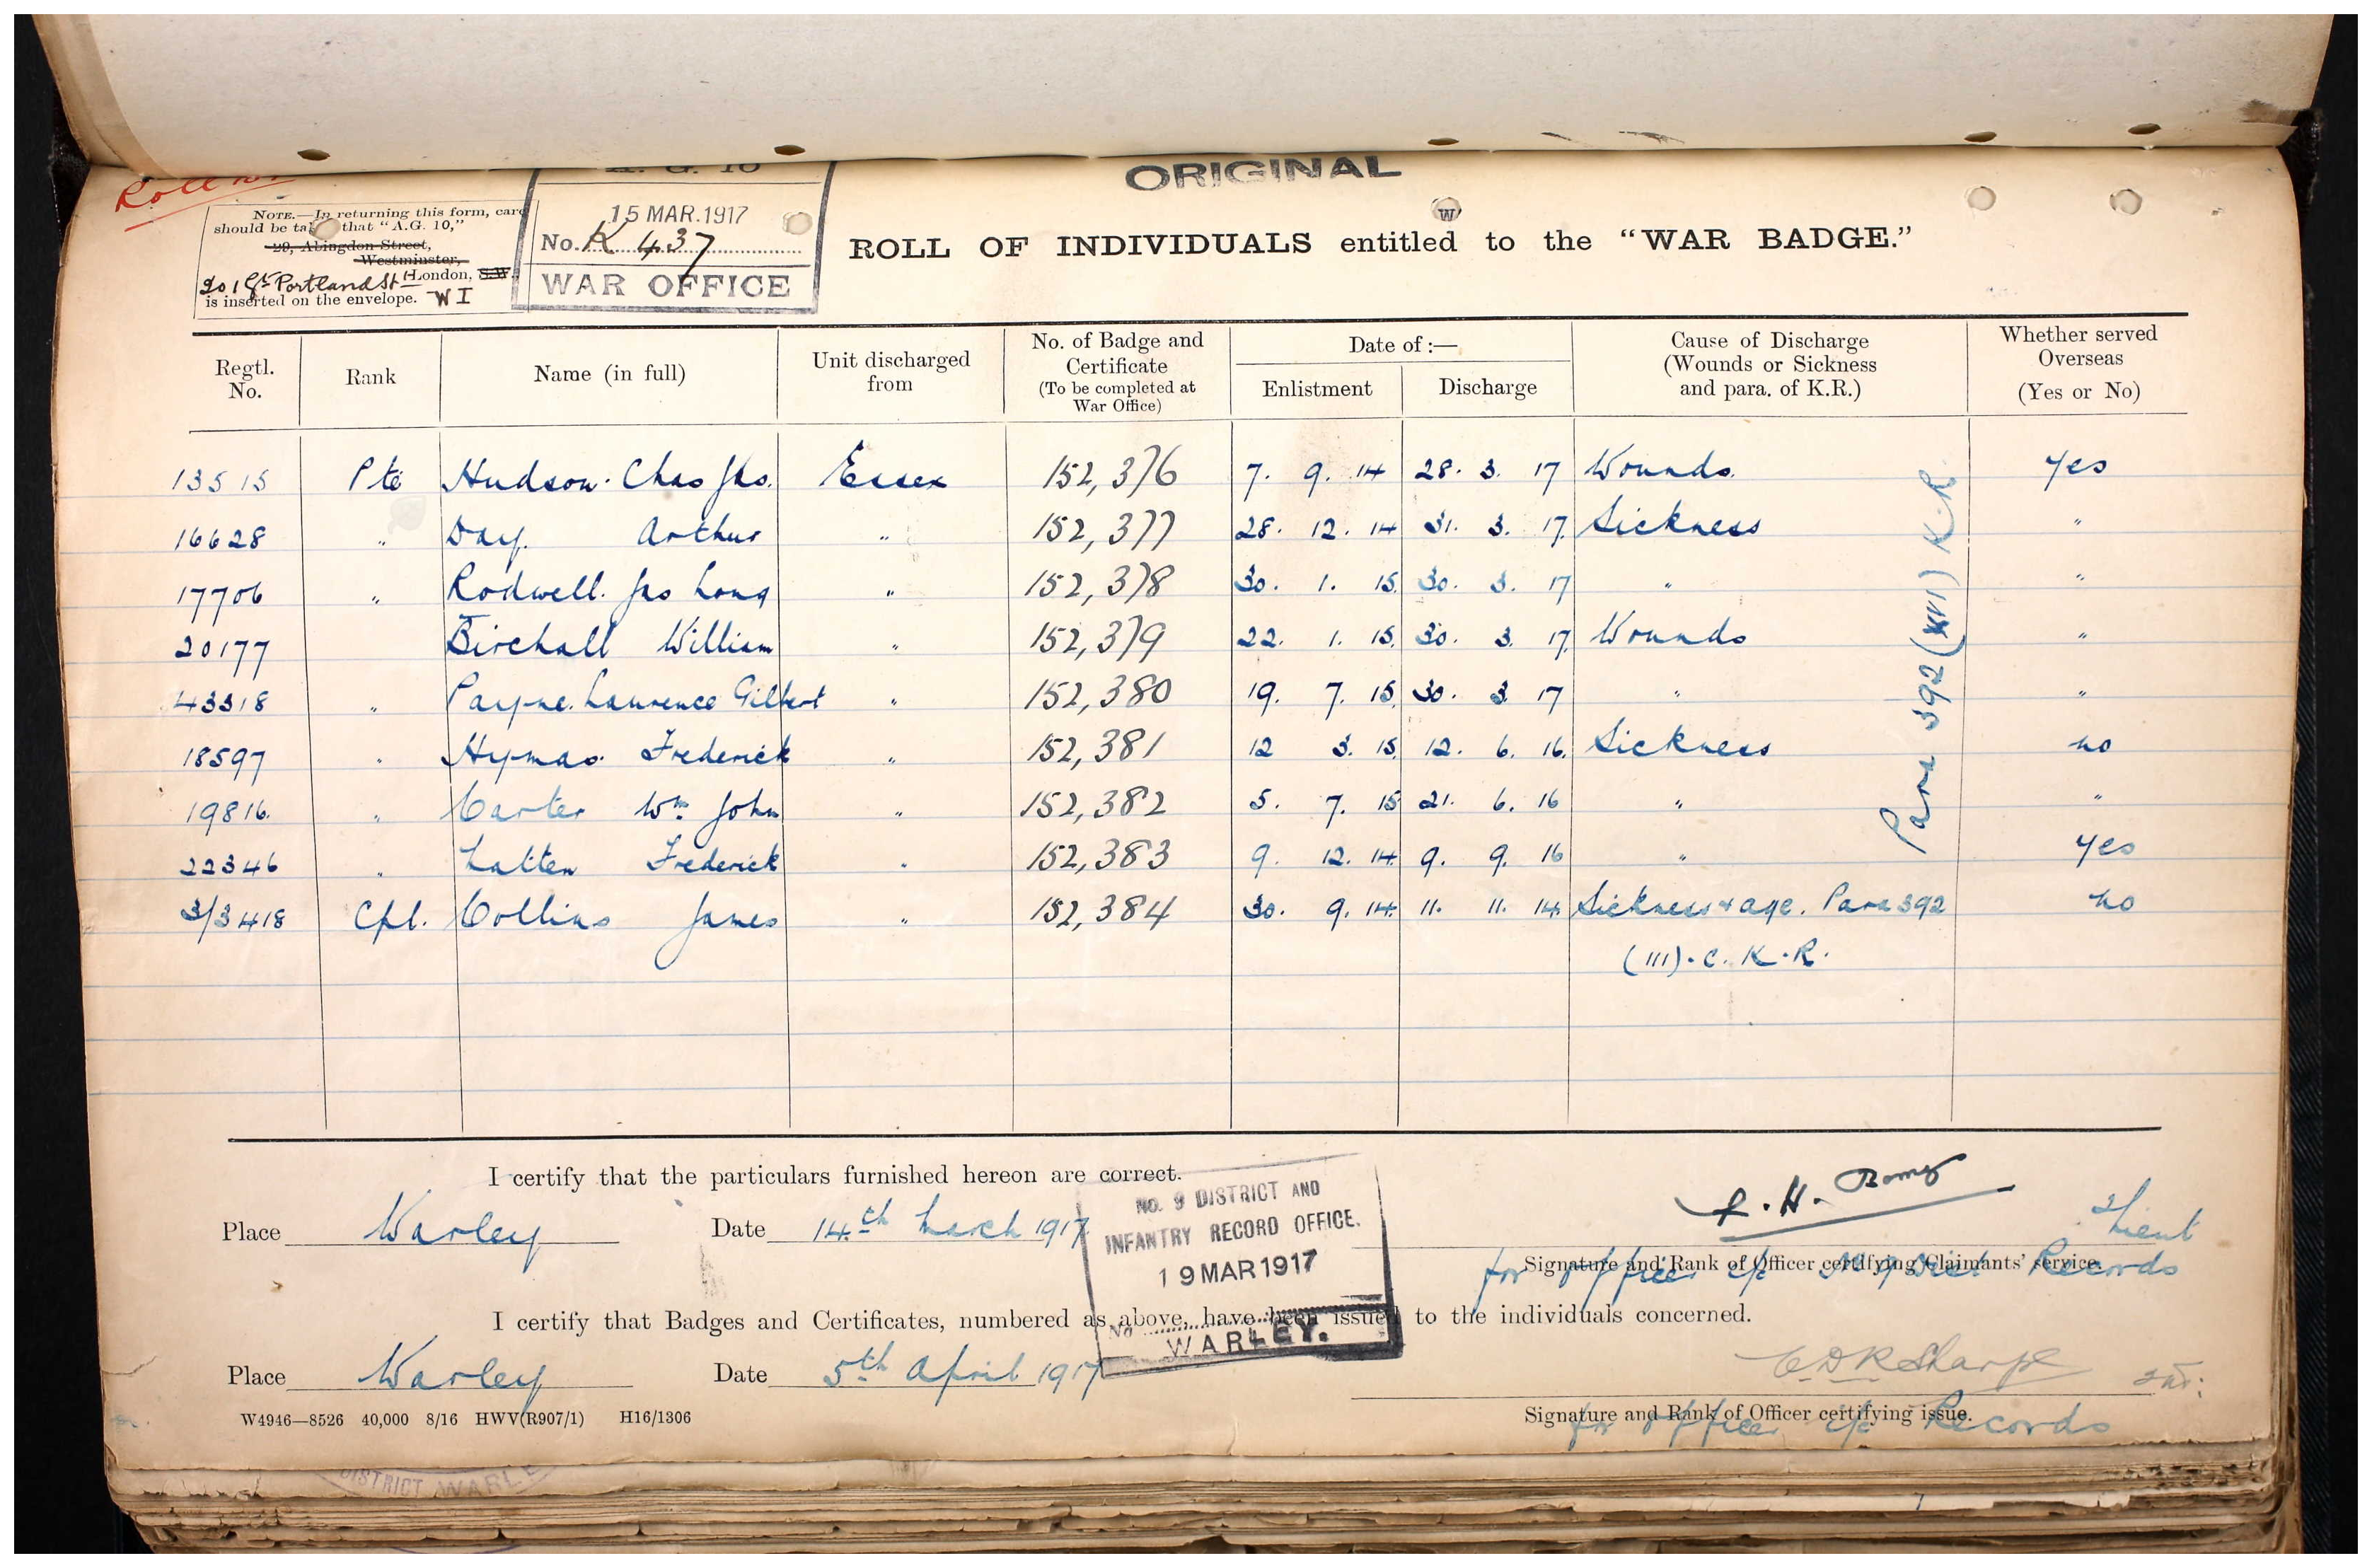 Roll No
A. G. 10
ORIGINAL
NOTE.—In returning this form, care
should be taken that "A.G. 10,"
20, Abingdon Street,
Westminster,
201 Gt Portland St London, S.W.
is inserted on the envelope. W I
15 MAR.1917
No. K 437
WAR OFFICE
W
ROLL OF INDIVIDUALS entitled to the "WAR BADGE."
Regtl. No. Rank Name (in full) Unit discharged from No. of Badge and Certificate (To be completed at War Office) Date of :— Enlistment Discharge Cause of Discharge (Wounds or Sickness and para. of K.R.) Whether served Overseas (Yes or No)
13515 Pte Hudson. Chas Jas. Essex 152,376 7. 9. 14 28. 3. 17 Wounds. Yes
16628 " Day. Arthur " 152,377 28. 12. 14 31. 3. 17. Sickness "
17706 " Rodwell. Jas Long " 152,378 30. 1. 15. 30. 3. 17 " "
20177 Birchall William " 152,379 22. 1. 15. 30. 3. 17. Wounds "
43318 " Payne. Laurence Gilbert " 152,380 19. 7. 15. 30. 3. 17 " "
18597 " Hymas. Frederick " 152,381 12 3. 15. 12. 6. 16. Sickness no
19816. " Carter Wm John " 152,382 5. 7. 15 21. 6. 16 " "
22346 " Latten Frederick " 152,383 9. 12. 14. 9. 9. 16 " Yes
3/3418 Cpl. Collins James " 152,384 30. 9. 14. 11. 11. 14. Sickness & age. Para 392 no
(III). C. K.R.
Para 392 (XVI) K.R.
I certify that the particulars furnished hereon are correct.
Place Warley Date 14th March 1917
NO. 9 DISTRICT AND
INFANTRY RECORD OFFICE.
19 MAR 1917
No
WARLEY.
2/Lieut
Signature and Rank of Officer certifying Claimants' service.
for Officer i/c No 9 Dist Records
I certify that Badges and Certificates, numbered as above, have been issued to the individuals concerned.
Place Warley Date 5th April 1917
C D R Sharpe
Signature and Rank of Officer certifying issue.
for Officer i/c Records
W4946—8526 40,000 8/16 HWV(R907/1) H16/1306
DISTRICT WARLE